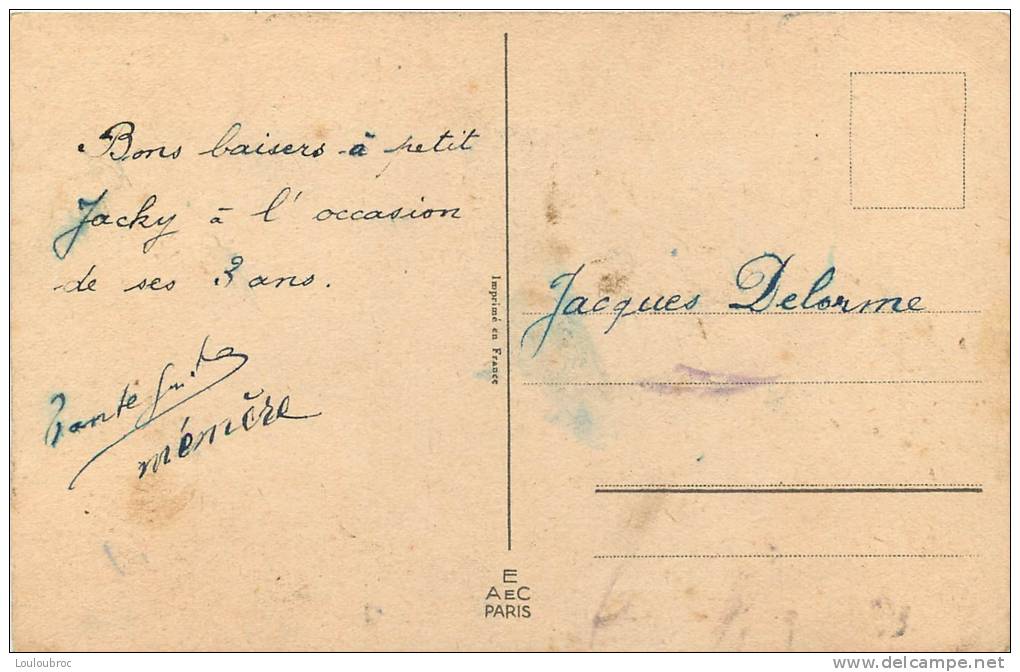 Bons baisers à petit
Jacky à l'occasion
de ses 3 ans.
Tante
mémère
Imprimé en France
Jacques Delorme
E
AEC
PARIS
Louloubroc
delcampe.net